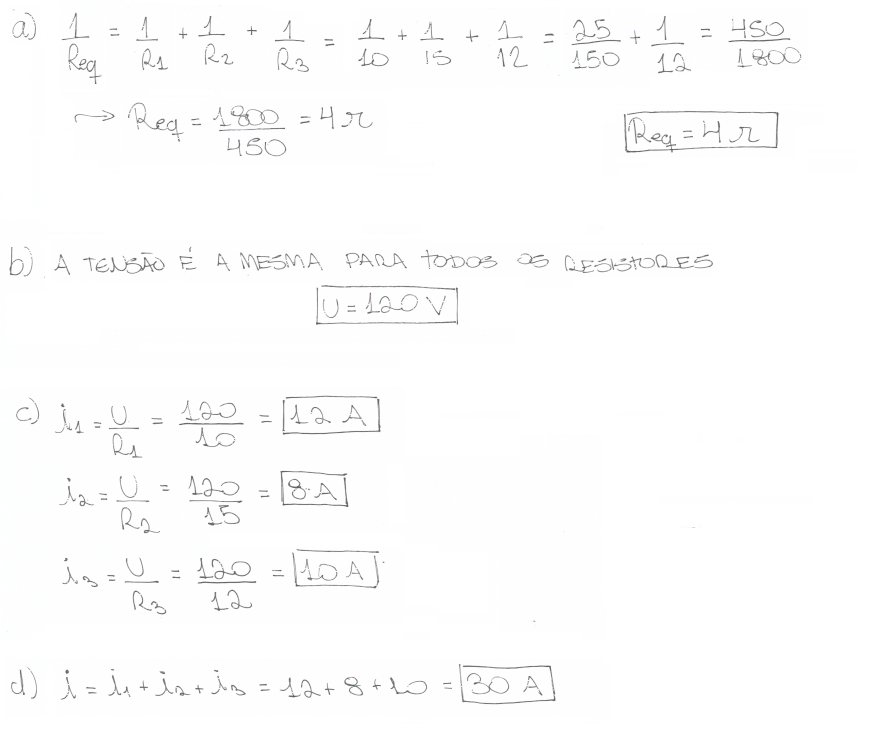 a) 1/Req = 1/R1 + 1/R2 + 1/R3 = 1/10 + 1/15 + 1/12 = 25/150 + 1/12 = 450/1800
→ Req = 1800/450 = 4 Ω
Req = 4 Ω
b) A TENSÃO É A MESMA PARA TODOS OS RESISTORES
U = 120 V
c) i1 = U/R1 = 120/10 = 12 A
i2 = U/R2 = 120/15 = 8 A
i3 = U/R3 = 120/12 = 10 A
d) i = i1 + i2 + i3 = 12 + 8 + 10 = 30 A